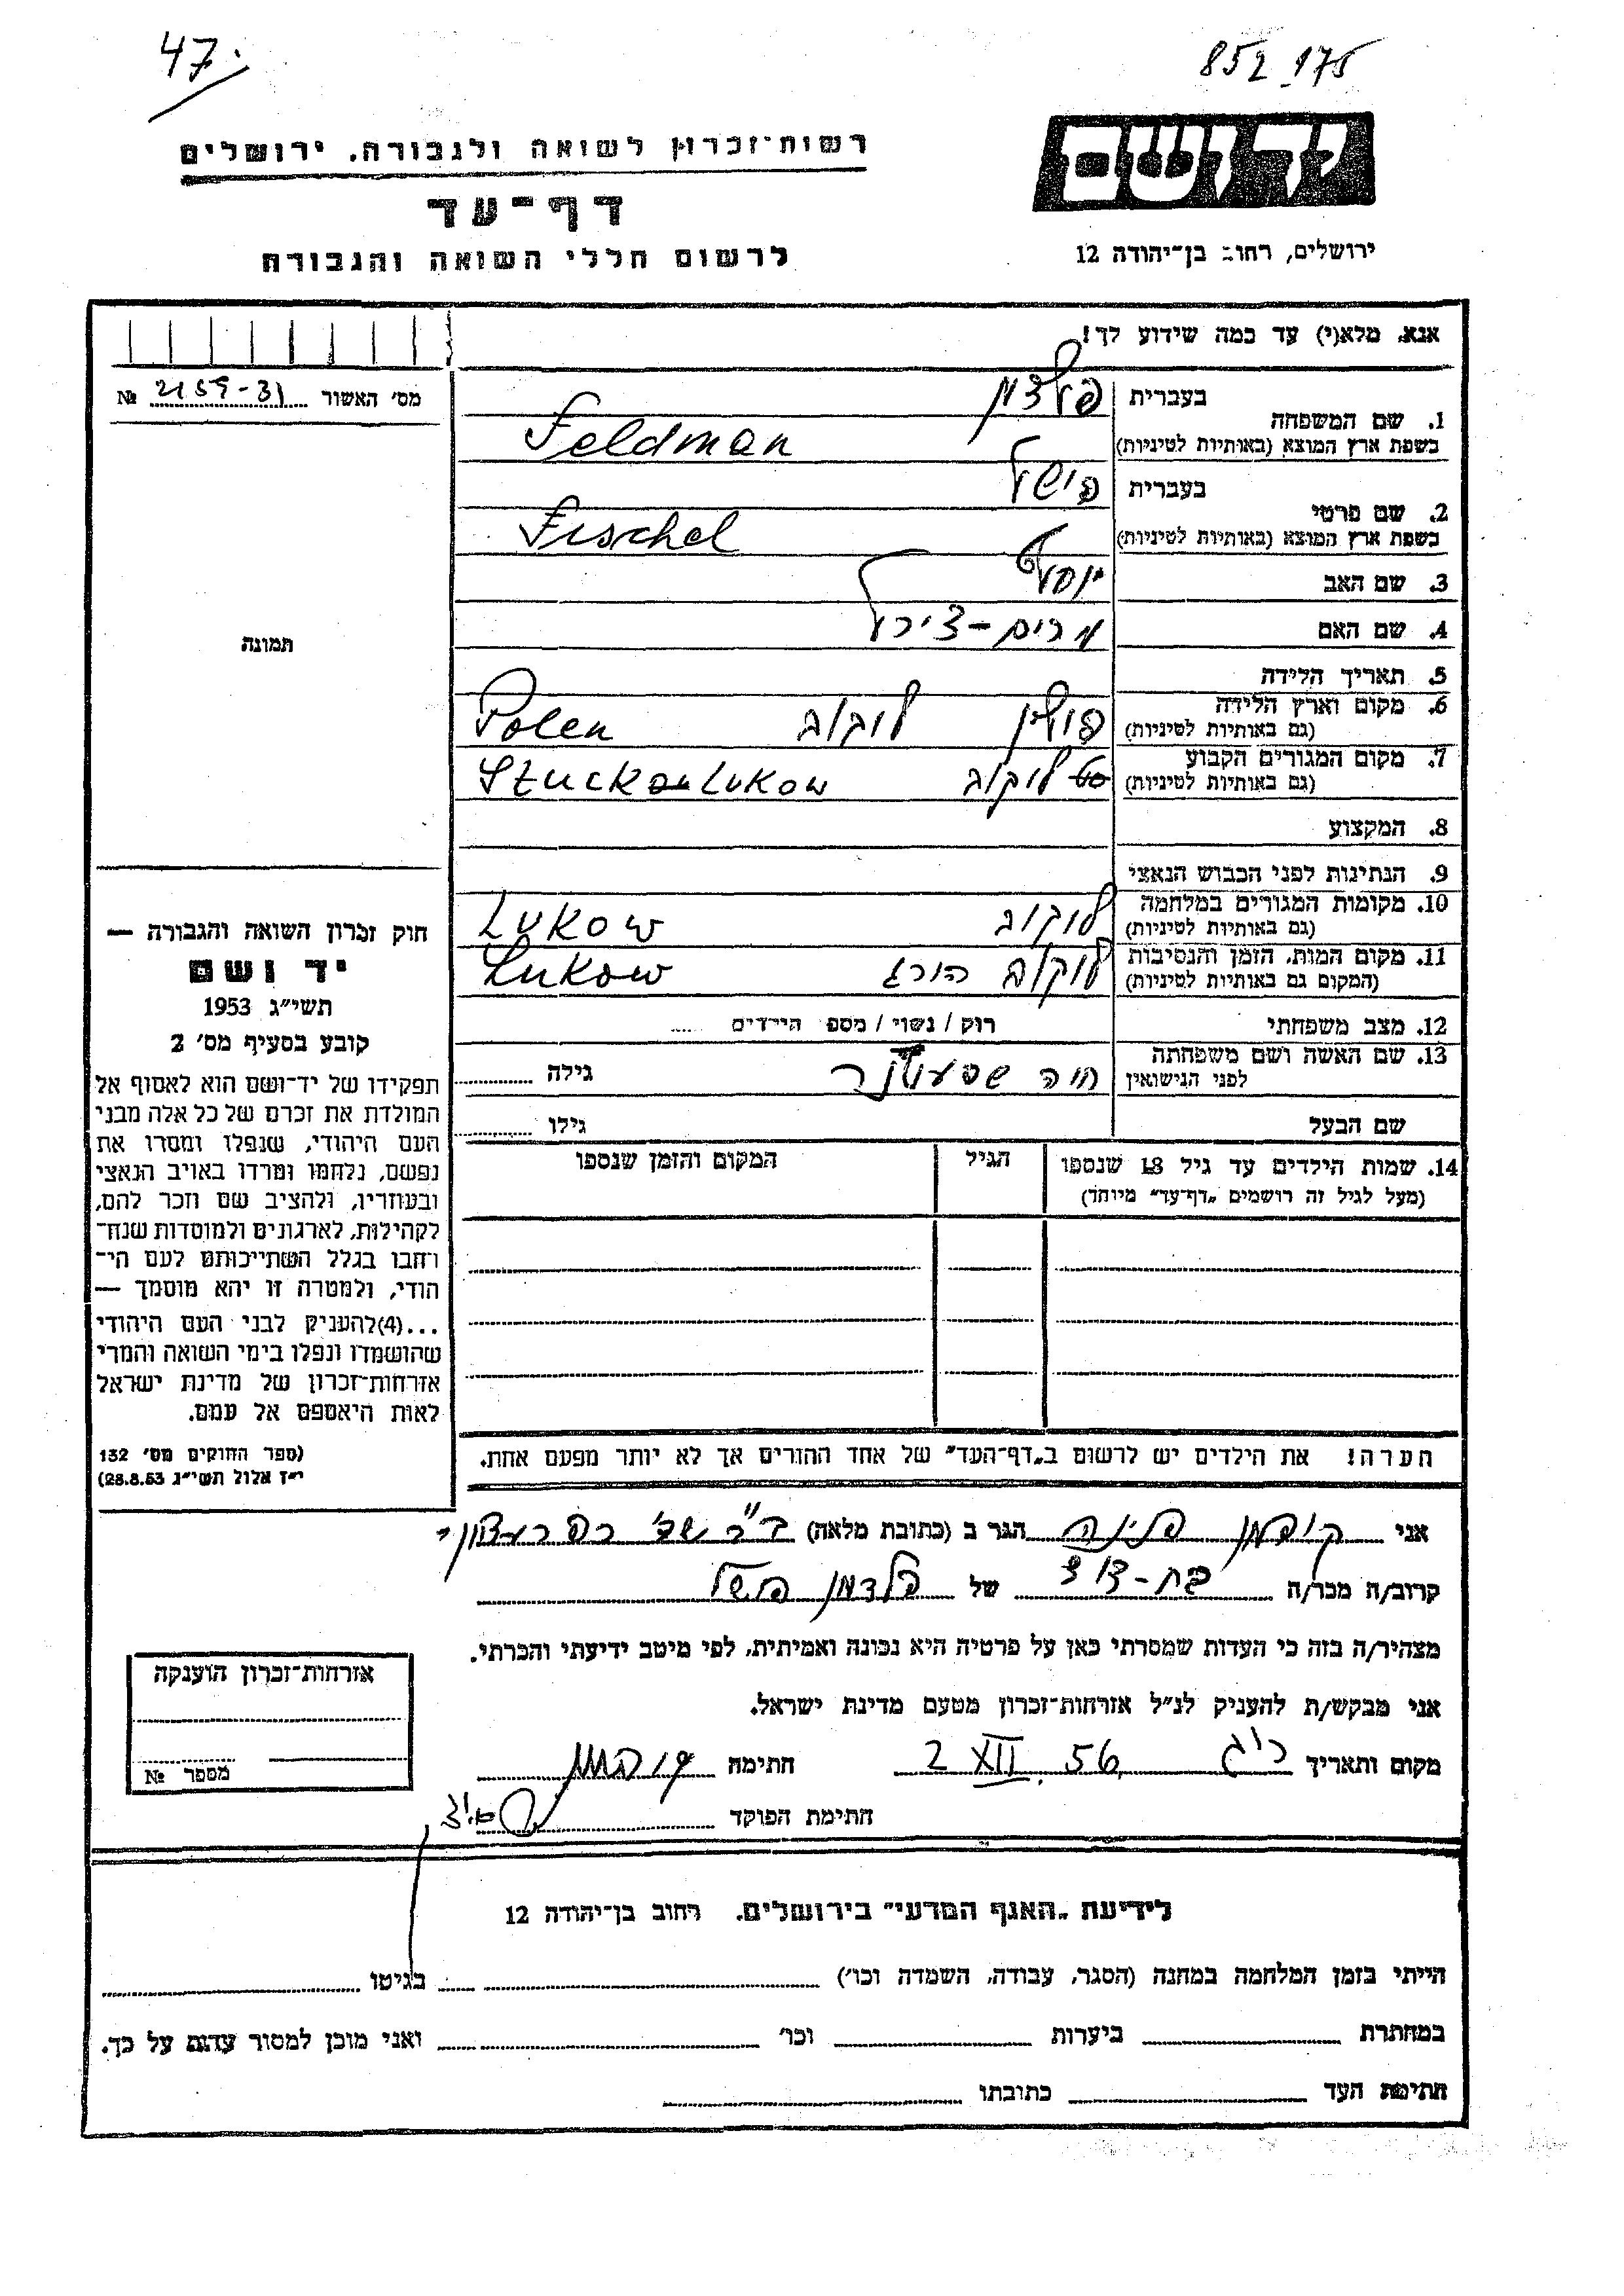 47.
852 175
רשות־זכרון לשואה ולגבורה. ירושלים
יד ושם
דף־עד
לרשום חללי השואה והגבורה
ירושלים, רחוב בן־יהודה 12
אנא, מלא(י) עד כמה שידוע לך!
מס׳ האשור № 2159-31
1. שם המשפחה בעברית פלדמן
בשפת ארץ המוצא (באותיות לטיניות) Feldman
2. שם פרטי בעברית פישל
בשפת ארץ המוצא (באותיות לטיניות) Fischel
3. שם האב יוסף
4. שם האם מרים-צירל
5. תאריך הלידה
6. מקום וארץ הלידה (גם באותיות לטיניות) פולין לוקוב Polen
7. מקום המגורים הקבוע (גם באותיות לטיניות) לוקוב Lukow
8. המקצוע
9. הנתינות לפני הכבוש הנאצי
10. מקומות המגורים במלחמה (גם באותיות לטיניות) לוקוב Lukow
11. מקום המות, הזמן והנסיבות (המקום גם באותיות לטיניות) לוקוב הורג Lukow
12. מצב משפחתי רוק / נשוי / מספ הילדים
13. שם האשה ושם משפחתה לפני הנישואין חיה גילה
שם הבעל גילו
14. שמות הילדים עד גיל 18 שנספו
(מעל לגיל זה רושמים „דף־עד״ מיוחד)
הגיל
המקום והזמן שנספו
הערה! את הילדים יש לרשום ב„דף־העד״ של אחד ההורים אך לא יותר מפעם אחת.
תמונה
חוק זכרון השואה והגבורה —
יד ושם
תשי״ג 1953
קובע בסעיף מס׳ 2
תפקידו של יד־ושם הוא לאסוף אל
המולדת את זכרם של כל אלה מבני
העם היהודי, שנפלו ומסרו את
נפשם, נלחמו ומרדו באויב הנאצי
ובעוזריו, ולהציב שם וזכר להם,
לקהילות, לארגונים ולמוסדות שנח־
רחבו בגלל השתייכותם לעם הי־
הודי, ולמטרה זו יהא מוסמך —
...(4)להעניק לבני העם היהודי
שהושמדו ונפלו בימי השואה והמרי
אזרחות־זכרון של מדינת ישראל
לאות היאספם אל עמם.
(ספר החוקים מס׳ 132
י״ז אלול תשי״ג 28.8.53)
אני קופמן פנינה הגר ב (כתובת מלאה)
קרוב/ה מכר/ה בת-דוד של פלדמן פישל
מצהיר/ה בזה כי העדות שמסרתי כאן על פרטיה היא נכונה ואמיתית, לפי מיטב ידיעתי והכרתי.
אני מבקש/ת להעניק לנ״ל אזרחות־זכרון מטעם מדינת ישראל.
מקום ותאריך 2 XII 56 חתימה
חתימת הפוקד
אזרחות־זכרון הוענקה
מספר №
לידיעת „האגף המדעי״ בירושלים. רחוב בן־יהודה 12
הייתי בזמן המלחמה במחנה (הסגר, עבודה, השמדה וכו׳) בגיטו
במחתרת ביערות וכו׳ ואני מוכן למסור עדות על כך.
חתימת העד כתובתו